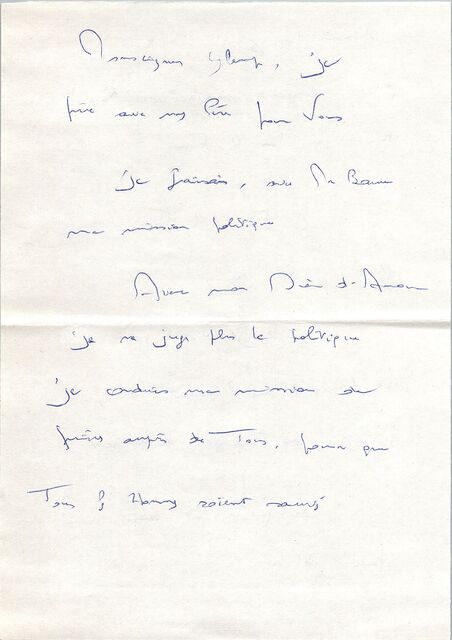 Monseigneur, je
prie avec mon Père pour Vous
je finirais, avec Mr Barre
ma mission politique
Avec mon Dieu d'Amour
je ne juge plus le politique
je conduis ma mission de
prières auprès de Tous, pour que
Tous les Hommes soient sauvés